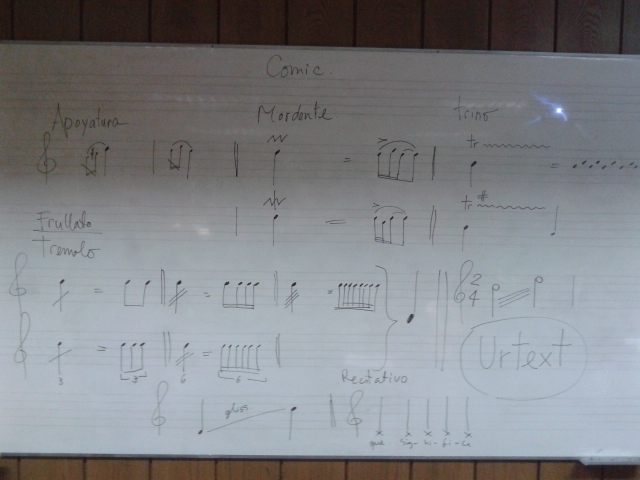 Comic.
Apoyatura Mordente trino
= tr =
= tr #
Frullato
Tremolo
= = = 2
4
3 = 3 6 = 6
Urtext
Recitativo
gliss
que sig- ni- fi- ca